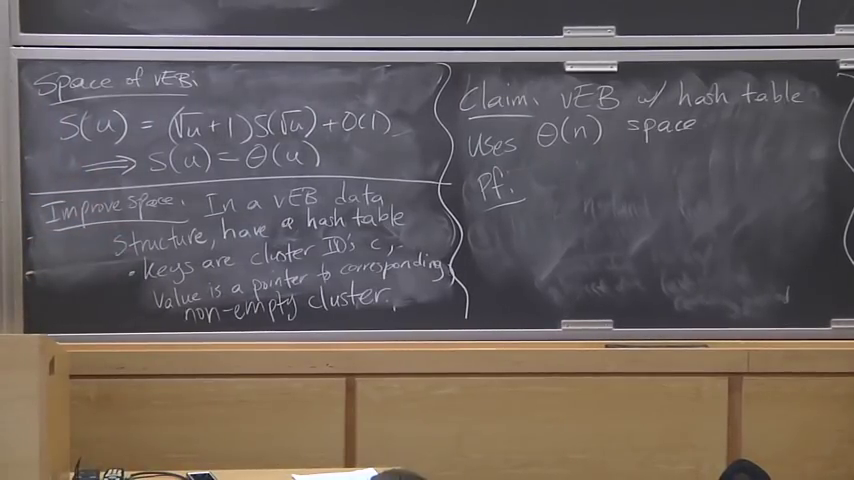 Space of vEB:
S(u) = (√u + 1)S(√u) + O(1)
⟹ S(u) = Θ(u)
Improve space. In a vEB data
structure, have a hash table
• keys are cluster ID's c,
value is a pointer to corresponding
non-empty cluster.
Claim. vEB w/ hash table
uses Θ(n) space
Pf: